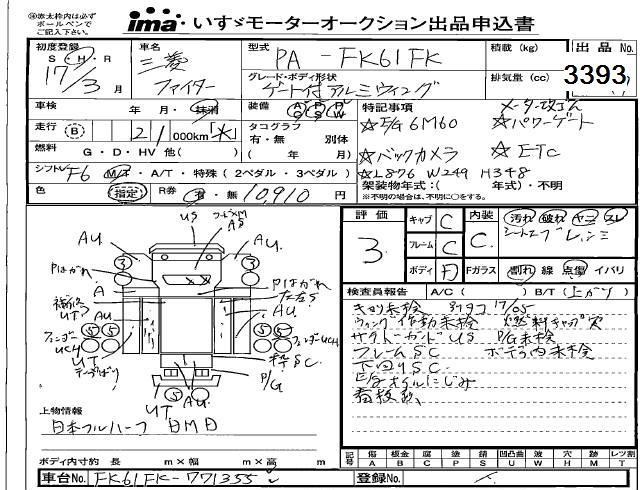 ※赤太枠内は必ず
ボールペンで
ご記入下さい。
ima いすゞモーターオークション出品申込書
初度登録 S・H・R 17/3月
車名 三菱 ファイター
型式 PA-FK61FK
グレード・ボディ形状 ゲート付アルミウィング
積載 (kg)
排気量 (cc)
出品 No. 3393
車検 年・月・抹消
装備 A/C P/S P/W
走行 B 21,000km
タコグラフ 有・無 別体
( 年 月)
燃料 G・D・HV 他( )
シフトレバー F6 M/T・A/T・特殊 ( 2ペダル・3ペダル )
色 指定 R券 有・無 10,910 円
特記事項 メーター改ざん
☆E/G 6M60 ☆パワーゲート
☆バックカメラ ☆ETC
☆L876 W249 H348
架装物年式:( 年式)・不明
※不明の場合は、不明に○をする。
評価 3
キャブ C
フレーム C
ボディ D
内装 C
汚れ 破れ ヤニ スレ
シート
Fガラス 割れ 線 点傷 イバリ
検査員報告 A/C ( ) B/T (上がり)
キョリ未検 17/05
ウィング作動未検 燃料キャップ欠
サイドガードUS P/G未検
フレームSC ボデー内未検
下回りSC
E/Gオイルにじみ
看板跡
US
AS
AU
AU.
3
3
Pはがれ
Pはがれ
A
補修
UT
AU
AU
フェンダー
UCH
5 5
5 5
フェンダーUCH
UT
SC
P/G
5
UT
AU
上物情報
日本フルハーフ DMD
ボディ内寸約 長 m×幅 m×高 m
記号 傷 A 板金 B 腐 C 塗 P 錆 S 凹凸曲 U 波 W 穴 H 跡 M レツ割 T
車台No. FK61FK-771355
登録No.